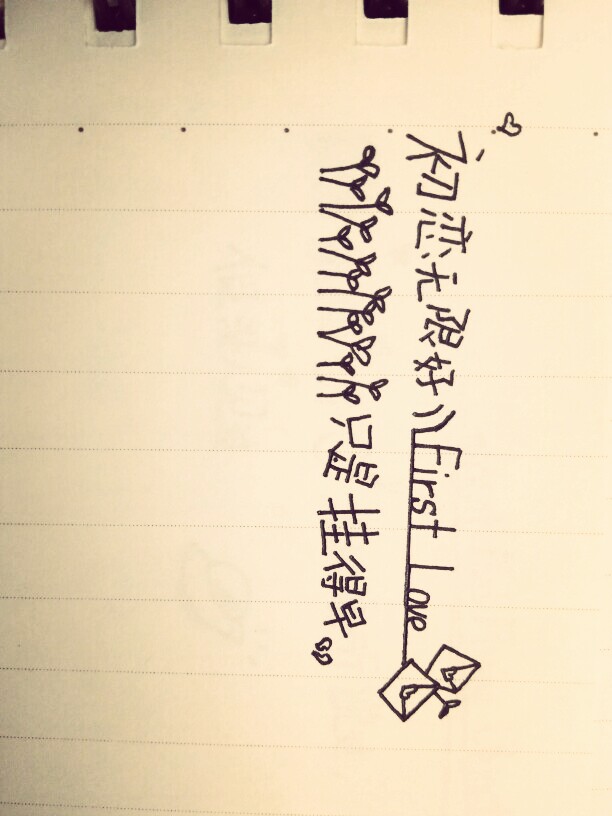 初恋无限好》First Love
只是挂得早